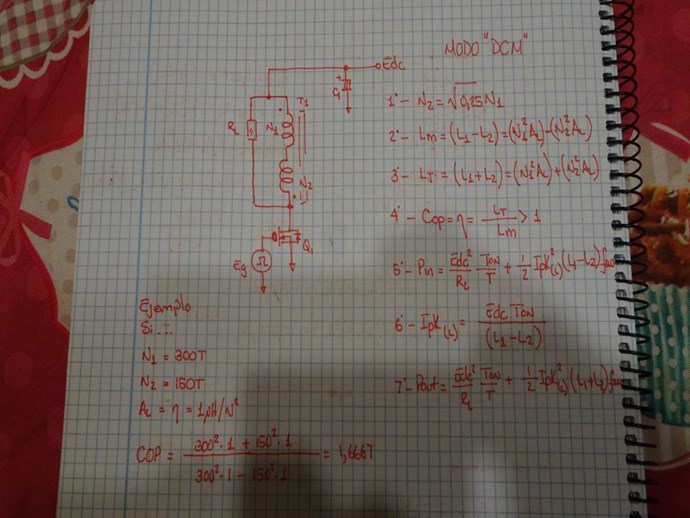 MODO "DCM"
Edc
+
C1
T1
RL
N1
N2
Q1
Eg
1º- N2 = √0,25 N1
2º- Lm = (L1-L2) = (N1²AL)-(N2²AL)
3º- LT = (L1+L2) = (N1²AL)+(N2²AL)
4º- Cop = η = LT/Lm > 1
5º- Pin = Edc²/RL · TON/T + 1/2 Ipk²(L) (L1-L2) f
6º- Ipk(L) = Edc TON/(L1-L2)
7º- Pout = Edc²/RL · TON/T + 1/2 Ipk²(L) (L1+L2) f
Ejemplo
Si ∴
N1 = 300T
N2 = 150T
AL = η = 1µH/N²
COP = 300²·1 + 150²·1 / 300²·1 - 150²·1 = 1,6667